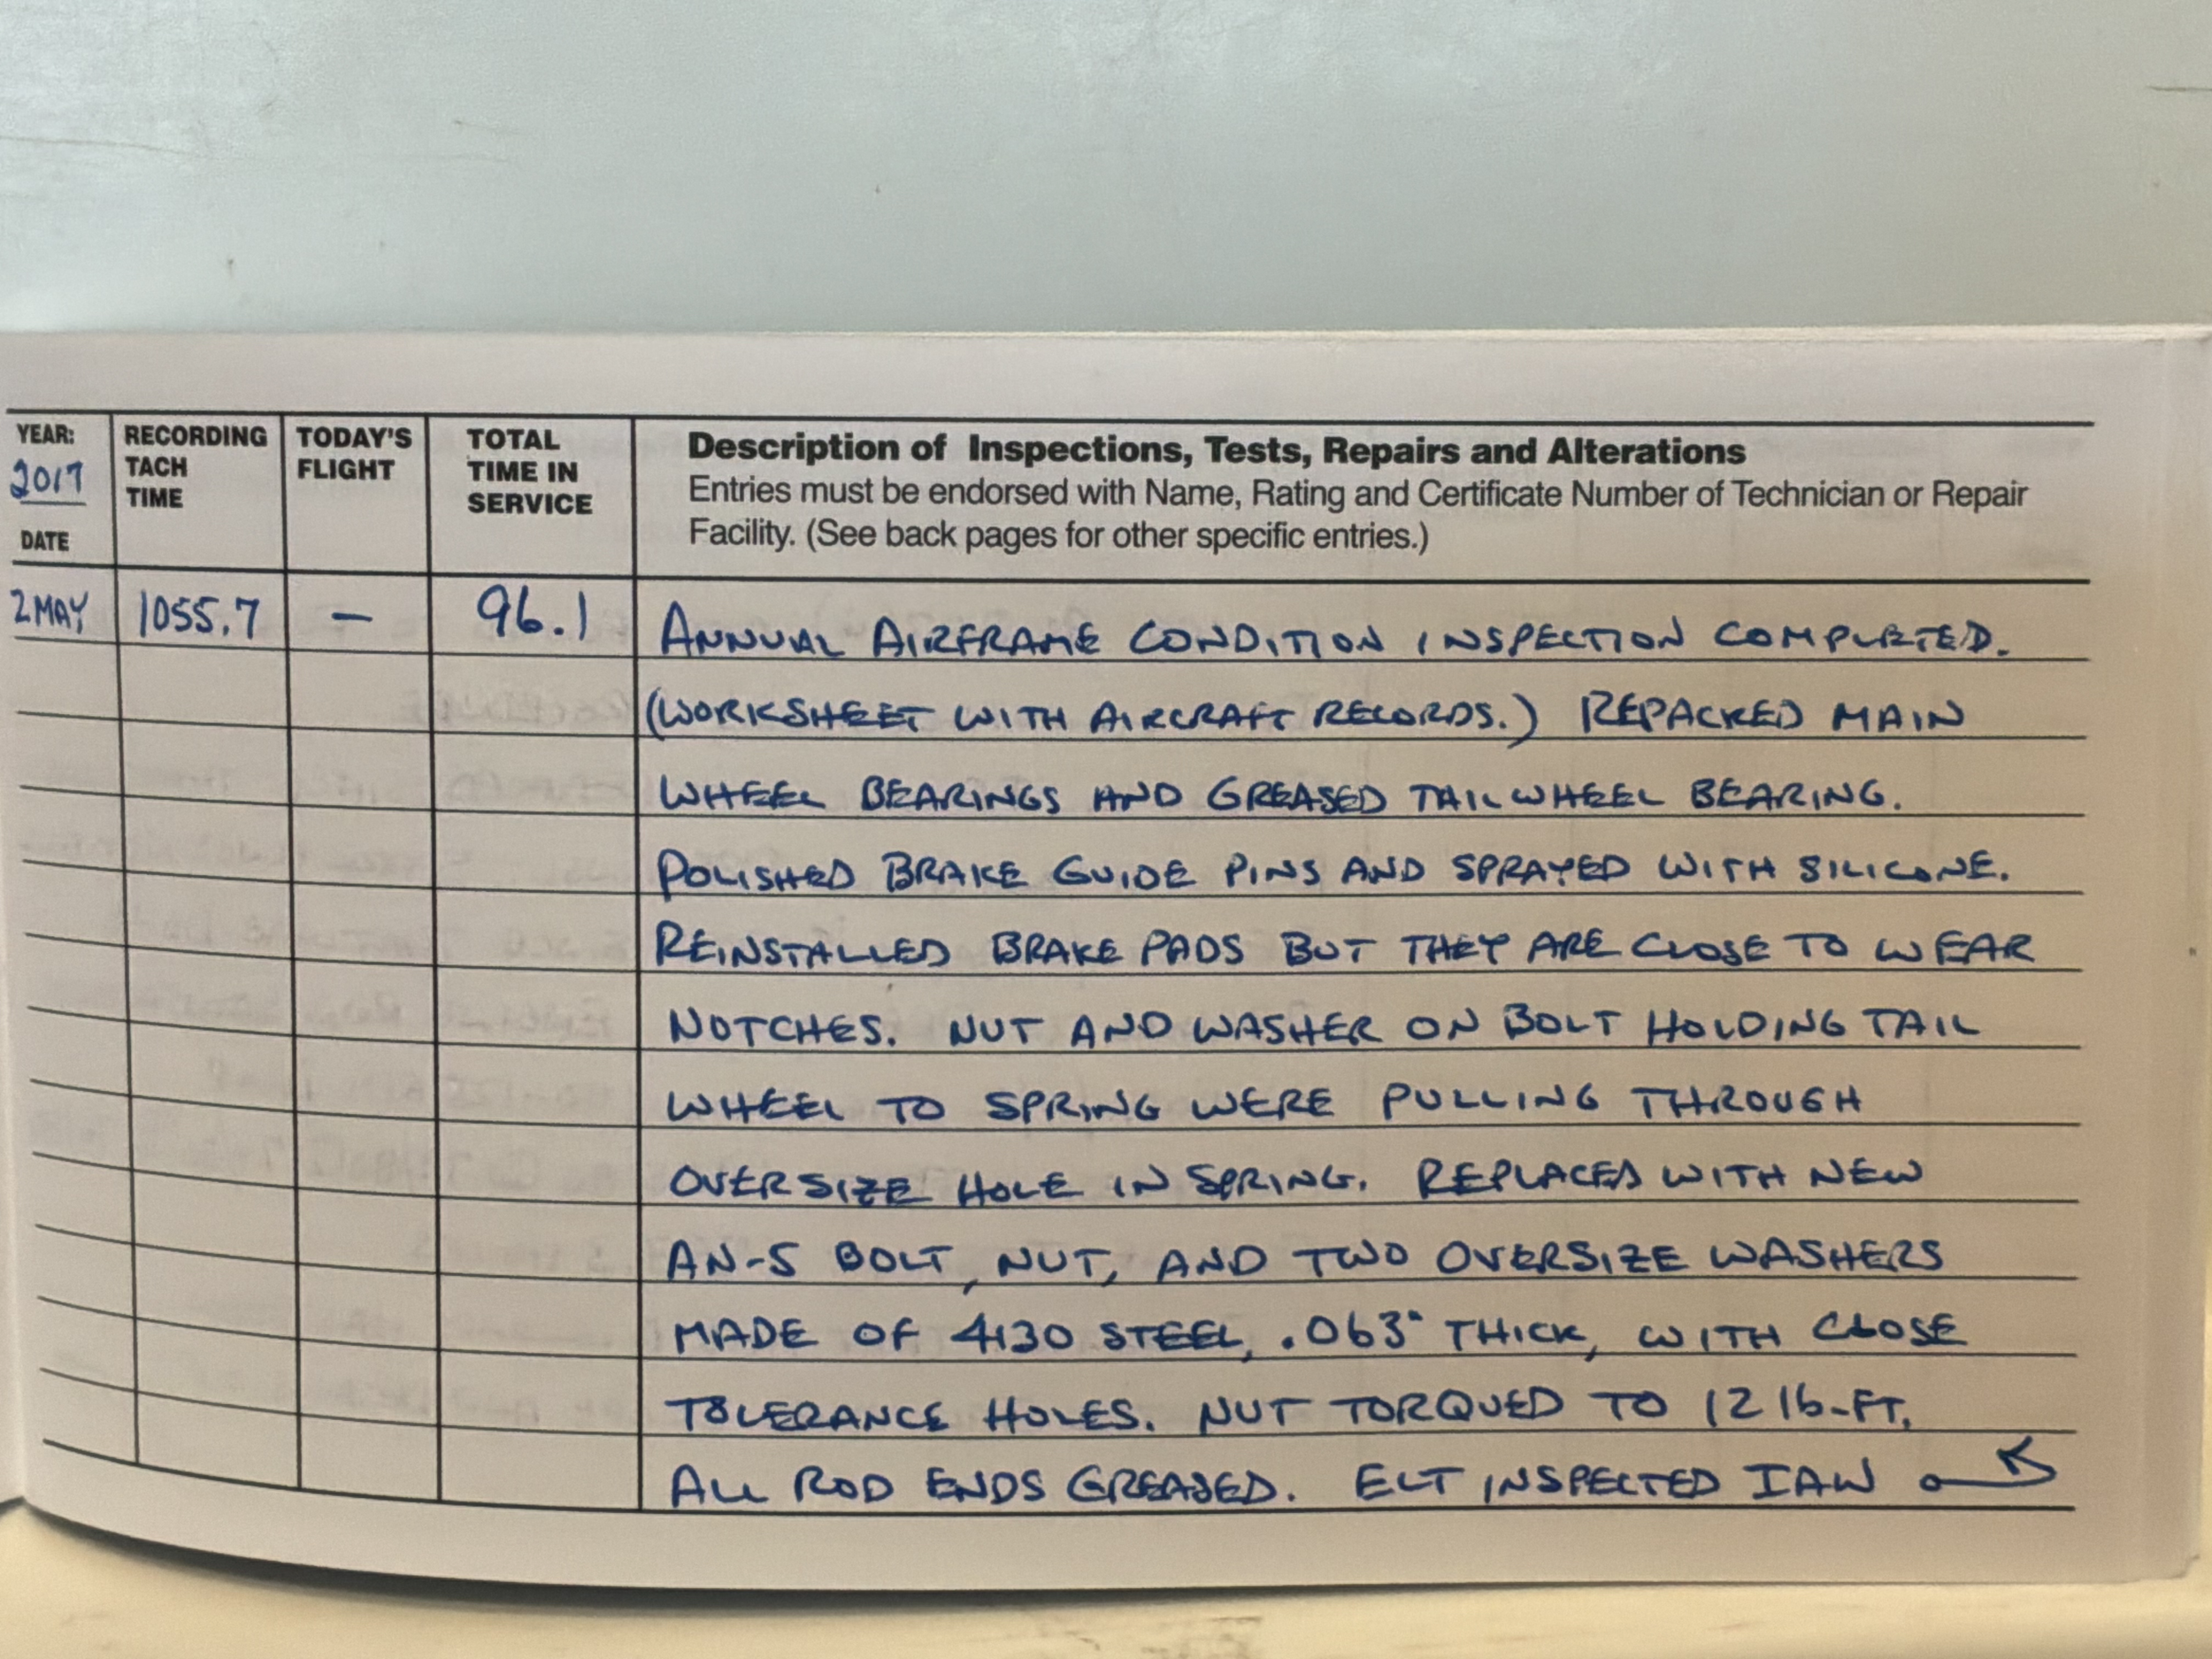 YEAR: RECORDING TODAY'S TOTAL Description of Inspections, Tests, Repairs and Alterations
2017 TACH FLIGHT TIME IN Entries must be endorsed with Name, Rating and Certificate Number of Technician or Repair
DATE TIME SERVICE Facility. (See back pages for other specific entries.)
2 MAY 1055.7 — 96.1 ANNUAL AIRFRAME CONDITION INSPECTION COMPLETED.
(WORKSHEET WITH AIRCRAFT RECORDS.) REPACKED MAIN
WHEEL BEARINGS AND GREASED TAILWHEEL BEARING.
POLISHED BRAKE GUIDE PINS AND SPRAYED WITH SILICONE.
REINSTALLED BRAKE PADS BUT THEY ARE CLOSE TO WEAR
NOTCHES. NUT AND WASHER ON BOLT HOLDING TAIL
WHEEL TO SPRING WERE PULLING THROUGH
OVERSIZE HOLE IN SPRING. REPLACED WITH NEW
AN-5 BOLT, NUT, AND TWO OVERSIZE WASHERS
MADE OF 4130 STEEL, .063" THICK, WITH CLOSE
TOLERANCE HOLES. NUT TORQUED TO 12 lb-FT.
ALL ROD ENDS GREASED. ELT INSPECTED IAW